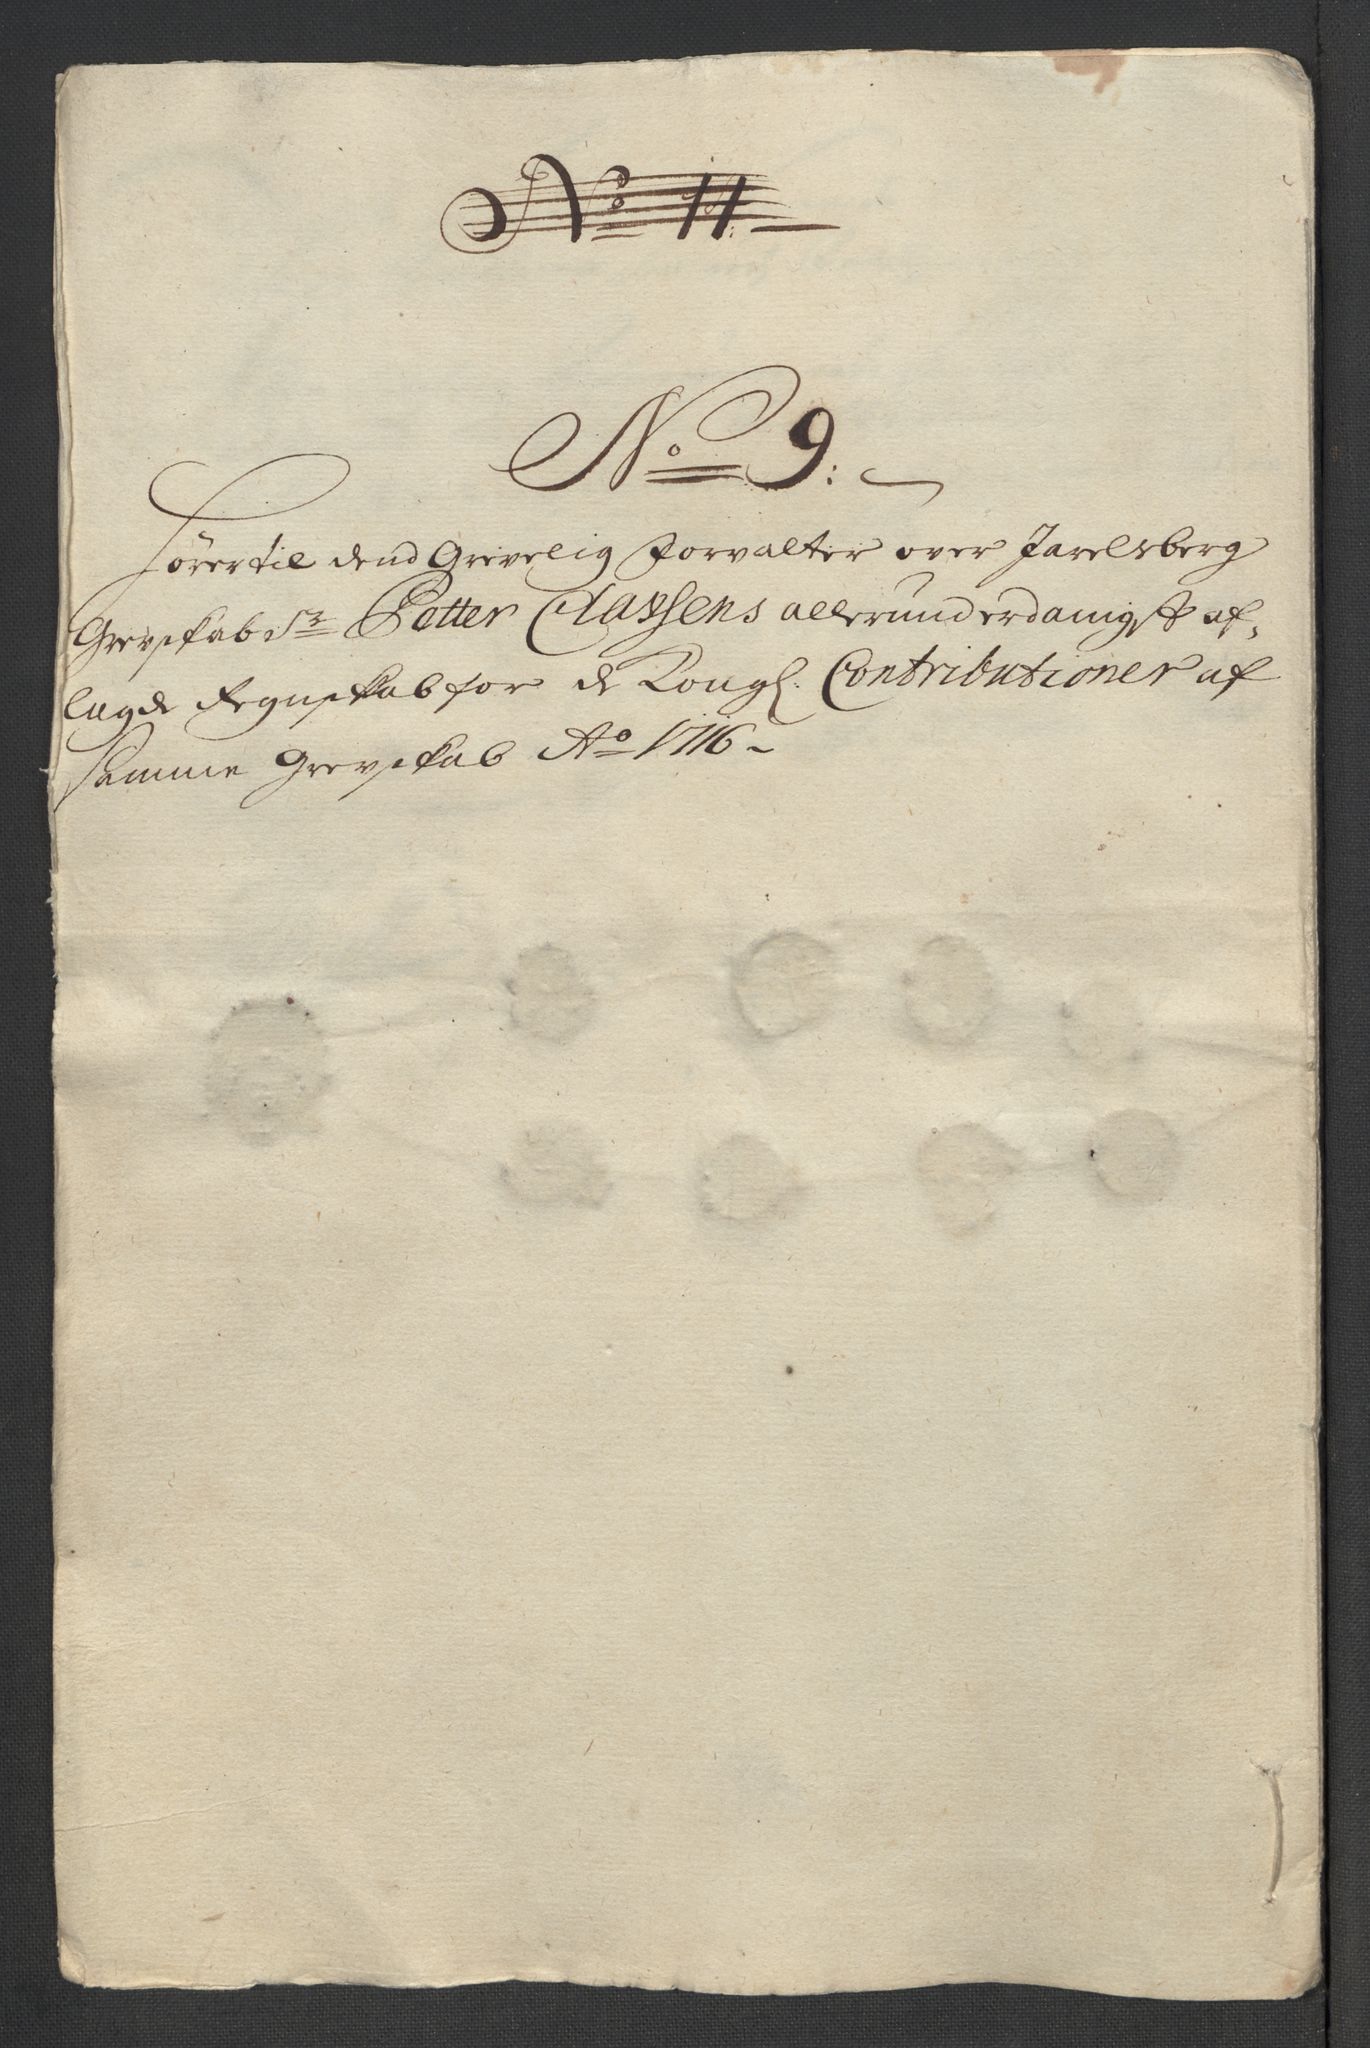 No 11
No 9:
Hörer til dend Grevelig Forvalter over Jarelsberg
Grevskab Sr Petter Classens allerunderdanigst af-
lagde Regnskab for de Kongl. Contributioner af
Samme Grevskab Ao 1716